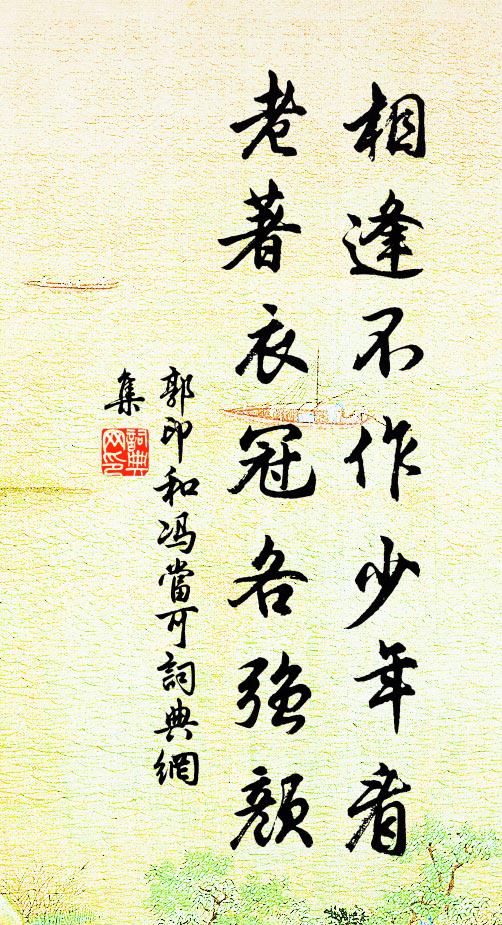 相逢不作少年看
老著衣冠各強顏
郭印和冯當可詞典網
集
詞典网印